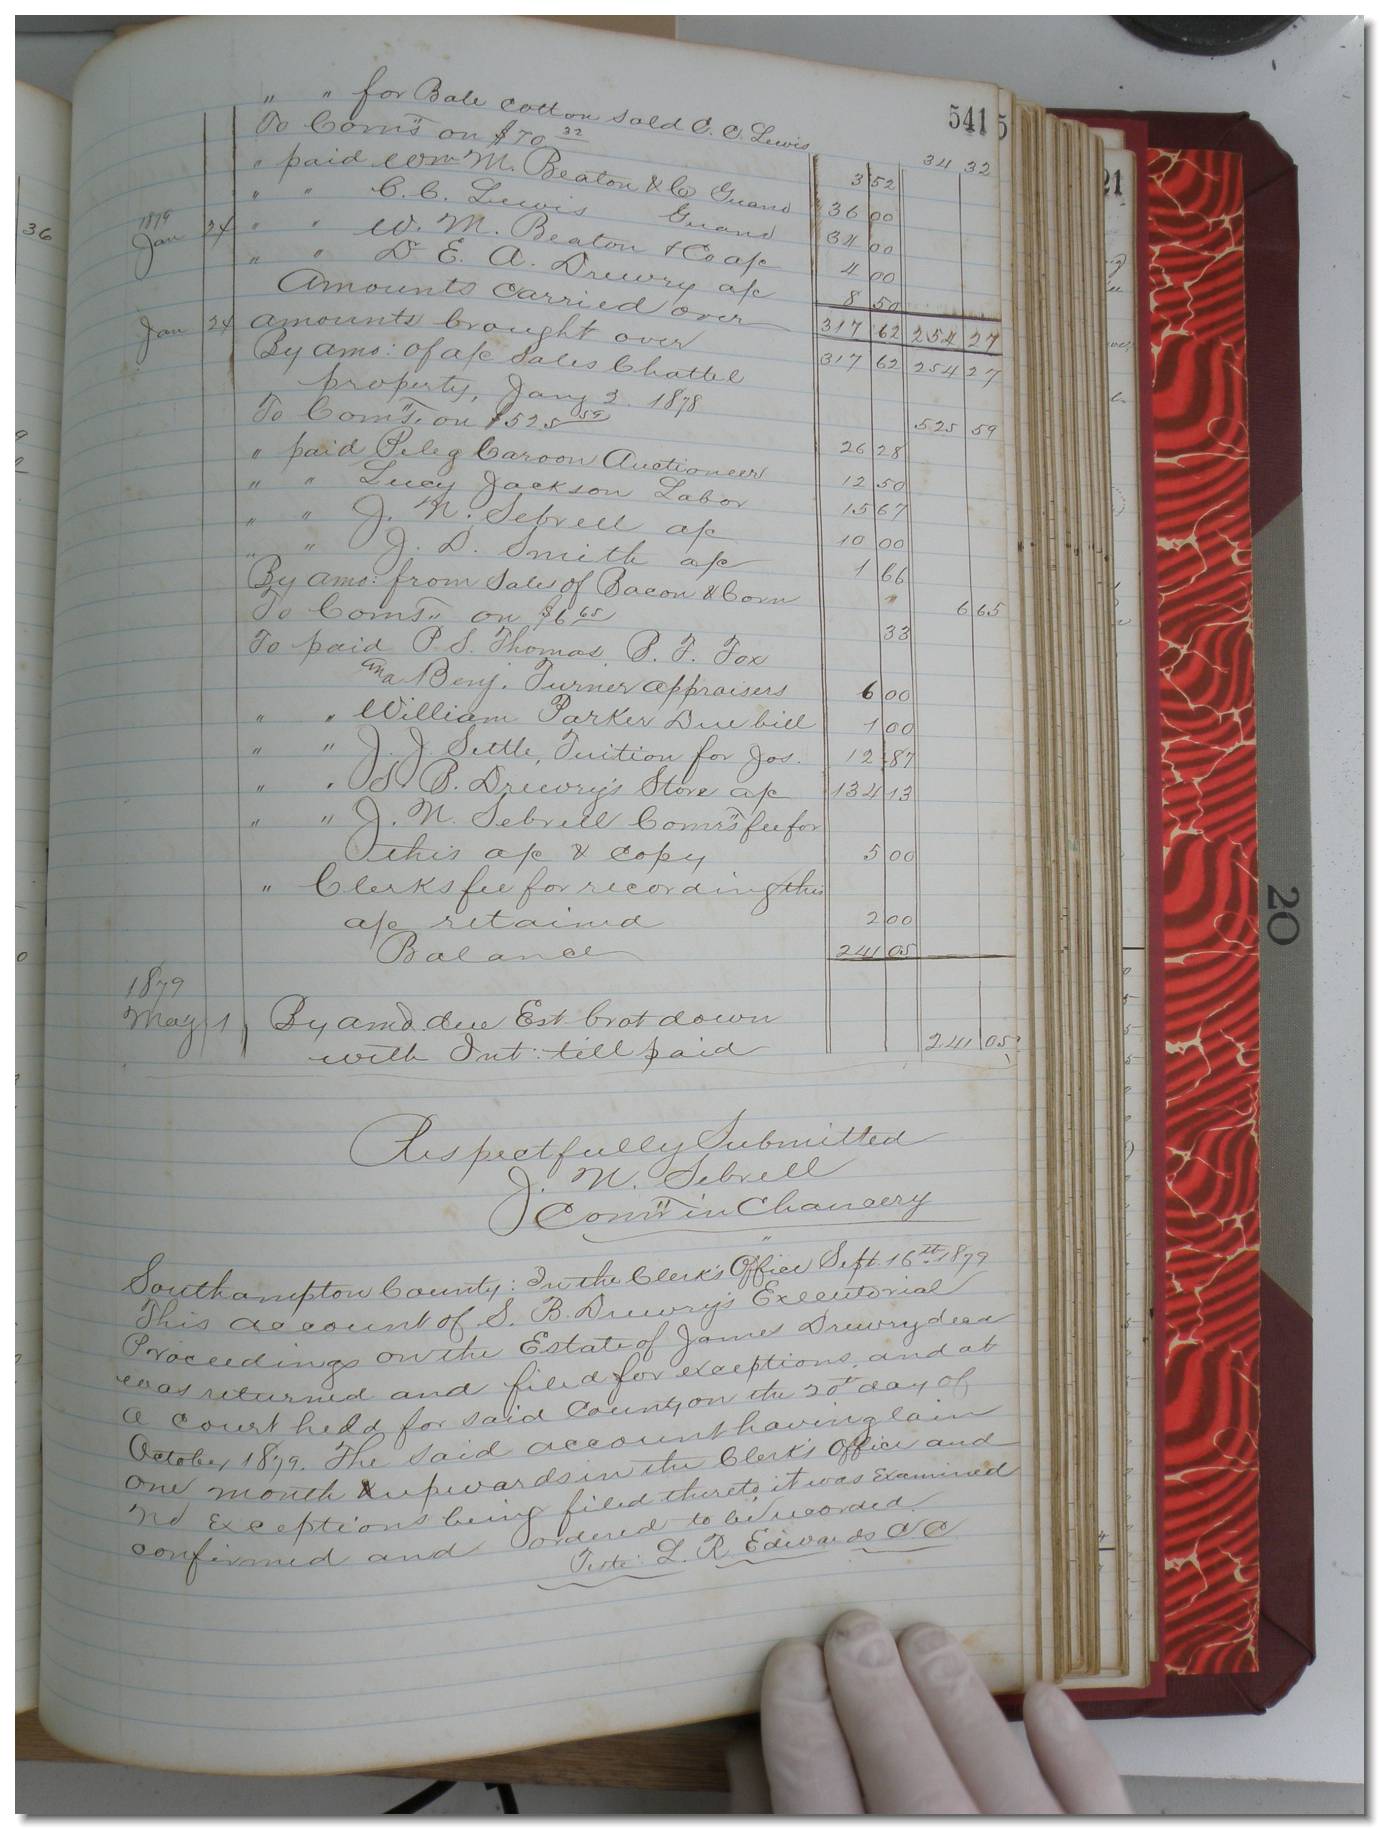 541 5
" " for Bale cotton sold C. C. Lewis 34 32
To Comrs on $70 32 3 52
" paid Wm M. Beaton & Co Guano 36 00
" " C. C. Lewis Guano 34 00
1879
Jan 24 " " W. M. Beaton & Co a/c 4 00
" " Dr E. A. Drewry a/c 8 50
Amounts Carried over 317 62 254 27
Jan 24 amounts brought over 317 62 254 27
By amo: of a/c Sales Chattel
property, Jany 2. 1878 525 59
To Comrs, on $525 59 26 28
" paid Peleg Caroon Auctioneer 12 50
" " Lucy Jackson Labor 15 67
" " J. N. Sebrell a/c 10 00
" " J. D. Smith a/c 1 66
By amo: from Sales of Bacon & Corn 6 65
To Coms " on $6 65 33
To paid P. S. Thomas, P. F. Fox
and Benj. Turner appraisers 6 00
" " William Parker Due bill 1 00
" " J. J. Settle, Tuition for Jos. 12 87
" " S. B. Drewry's Store a/c 134 13
" " J. N. Sebrell Comrs fee for
this a/c & copy 5 00
" Clerks fee for recording this
a/c retained 2 00
Balance 241 05
1879
May 1 By amo. due Est. brot down
with Int: till paid 241 05
Respectfully Submitted
J. N. Sebrell
Comr in Chancery
Southampton County: In the Clerk's Office Sept. 16th 1879
This account of S. B. Drewry's Executorial
Proceedings on the Estate of James Drewry decd
was returned and filed for exceptions, and at
a court held for said County on the 20th day of
October 1879. The said account having lain
one month & upwards in the Clerk's Office and
no exceptions being filed thereto it was Examined
confirmed and ordered to be recorded.
Teste: L. R. Edwards C C
36
21
20